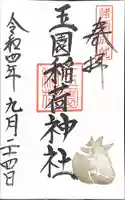 奉拝
玉園稲荷神社
令和四年九月二十四日